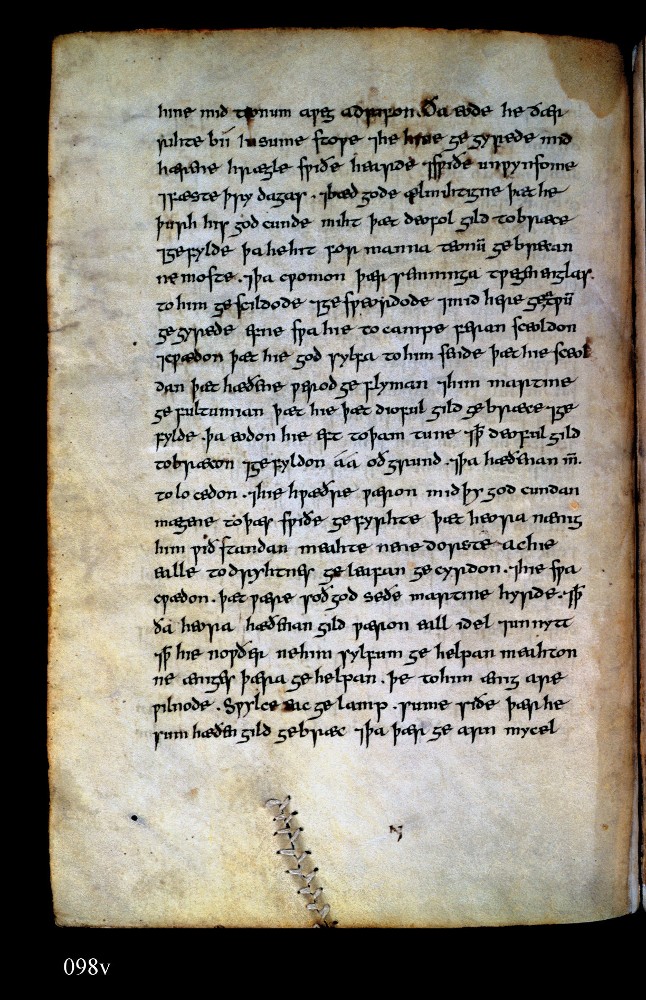 hine mid teonum aƿeg adrifon. Ða eode he ðær
rihte bii in sume stoƿe ⁊ he hine gegyrede mid
hærene hrægle sƿiðe hearde ⁊ sƿiðe unƿynsome
⁊ fæste þry dagas. ⁊ bæd gode ælmihtigne þæt he
þurh his godcunde miht þæt deofol gild tobræce
⁊ gefylde þa he hit for manna teonū gebrecan
ne moste. ⁊ þa cƿomon þær semninga tƿegen englas.
to him gescildode ⁊ gesƿeordode ⁊ mid here geatƿū
gegyrede efne sƿa hie to campe feran sceoldon
⁊ cƿædon þæt hie god sylfa to him sende þæt hie sceol
dan þæt hæðene ƿerod geflyman ⁊ him martine
gefultumian þæt hie þæt dioful gild gebræce ⁊ ge
fylde. þa eodon hie eft to þam tune ⁊ ꝥ deoful gild
tobræcon ⁊ gefyldon áá oð grund. ⁊ þa hæðenan m̄.
to locedon. ⁊ hie hƿæðre ƿæron mid þy godcundan
mægene to þæs sƿiðe gefyrhte þæt heora nænig
him ƿiðstandan meahte ne ne dorste ac hie
ealle to dryhtnes geleafan gecyrdon. ⁊ hie sƿa
cƿædon. þæt ƿære soð god seðe martine hyrde. ⁊ ꝥ
ða heora hæðnan gild ƿæron eall idel ⁊ unnytt
⁊ ꝥ hie noƿðer ne him sylfum gehelpan meahton
ne ænges þæra gehelpan. þe to him ænig are
ƿilnode. Sƿylce eac gelamp. sume siðe þær he
sum hæðen gild gebræc ⁊ þa þær ge arn mycel
⁊
098v